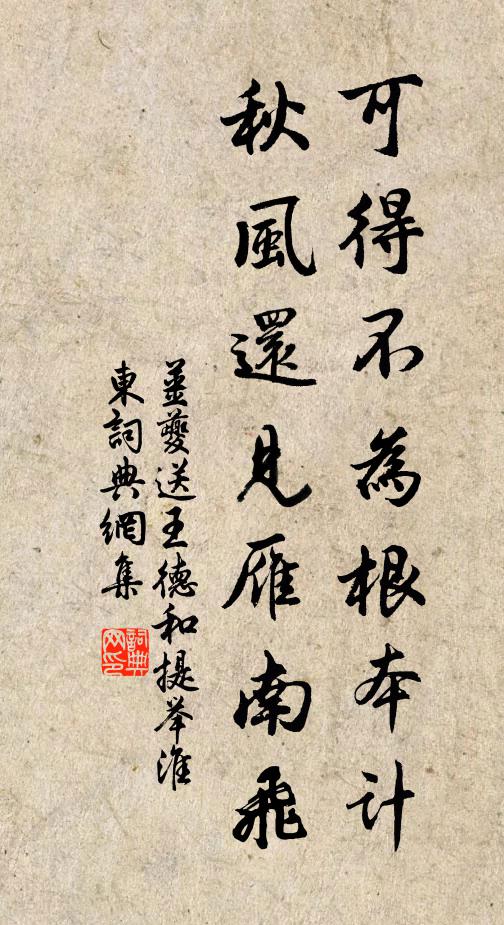 可得不為根本计
秋風還見雁南飛
薑夔送王德和提举淮
東詞典網集
詞典
网印